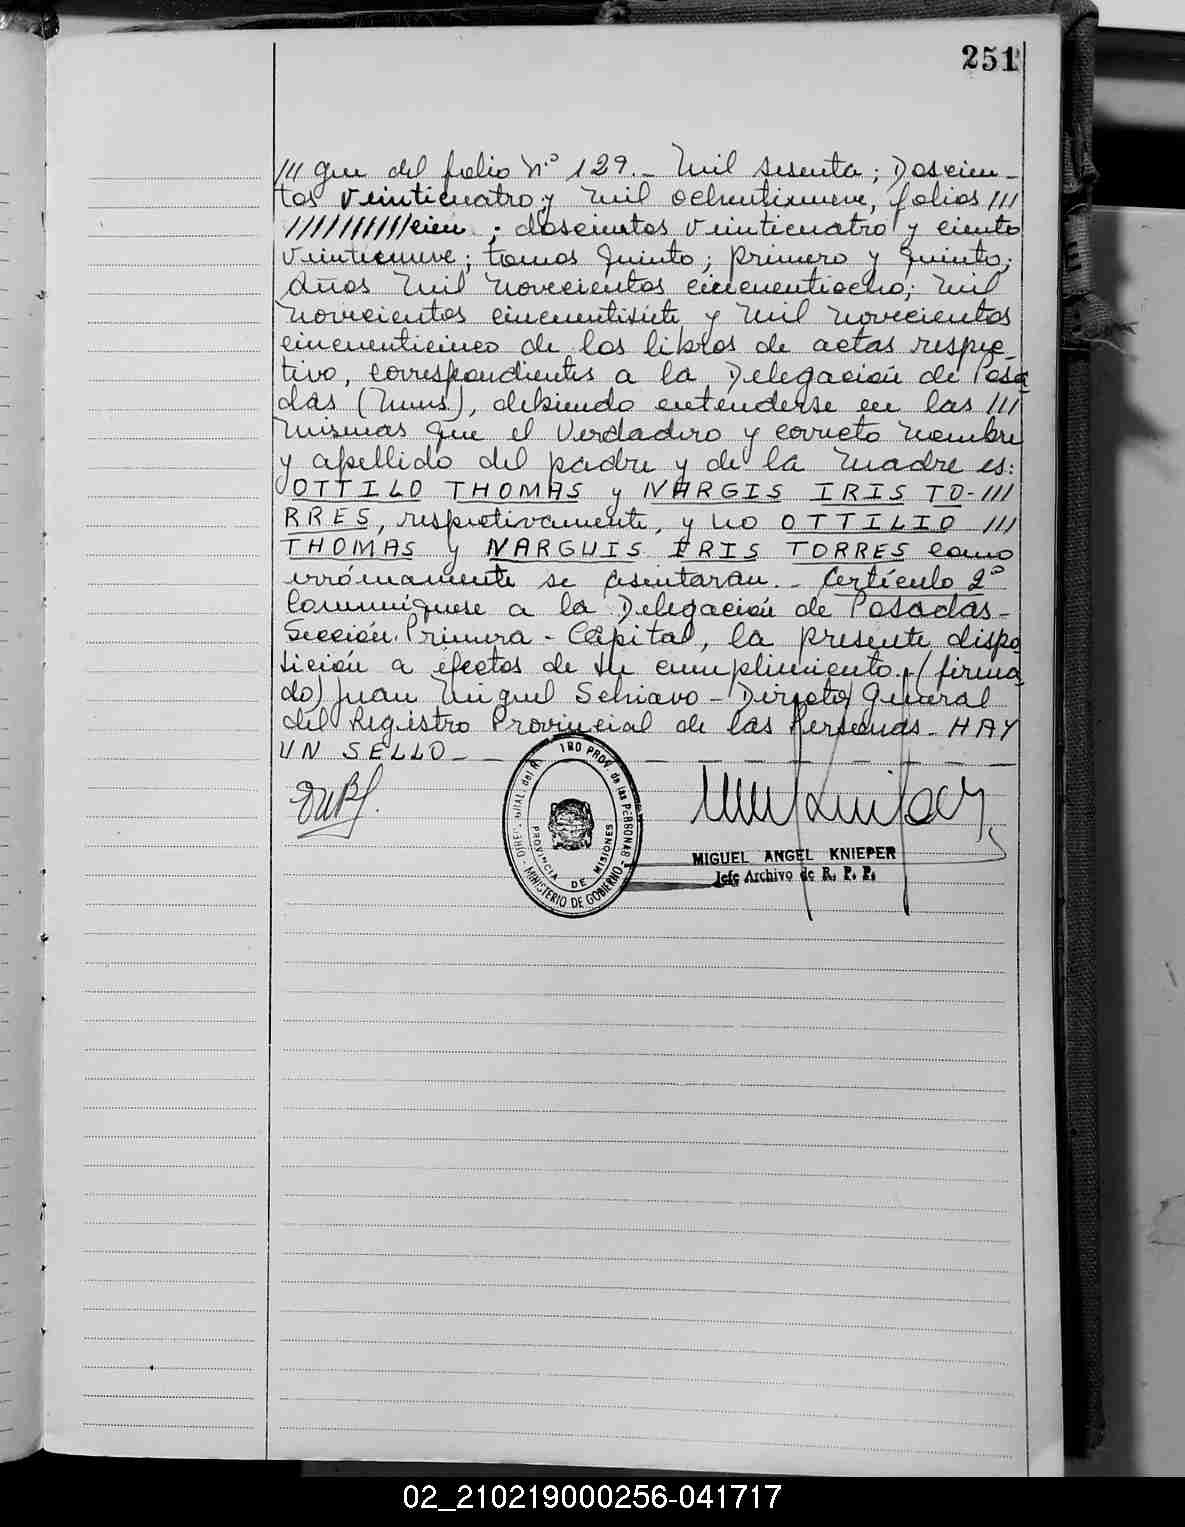 251
/// gue del folio Nº 129.- Mil sesenta; Doscien-
tos veinticuatro y mil ochentinueve, folios ///
///////////cien ; doscientos veinticuatro y ciento
veintinueve; tomos quinto; primero y quinto;
años mil novecientos cincuentiocho; mil
novecientos cincuentisiete y mil novecientos
cincuenticinco de los libros de actas respec-
tivo, correspondientes a la Delegación de Posa
das (Mnes), debiendo entenderse en las ///
mismas que el verdadero y correcto nombre
y apellido del padre y de la madre es:
OTTILO THOMAS y NARGIS IRIS TO-///
RRES, respectivamente, y no OTTILIO ///
THOMAS y NARGUIS IRIS TORRES como
erróneamente se asentaran.- Artículo 2º
Comuníquese a la Delegación de Posadas-
Sección Primera - Capital, la presente dispo
sición a efectos de su cumplimiento.-(firma-
do) Juan Miguel Schiavo - Director General
del Registro Provincial de las Personas - HAY
UN SELLO - - - -
DIREC. GRAL. del R. TRO PROV. de las PERSONAS
PROVINCIA DE MISIONES
- MINISTERIO DE GOBIERNO -
MIGUEL ANGEL KNIEPER
Jefe Archivo de R. P. P.
02_210219000256-041717